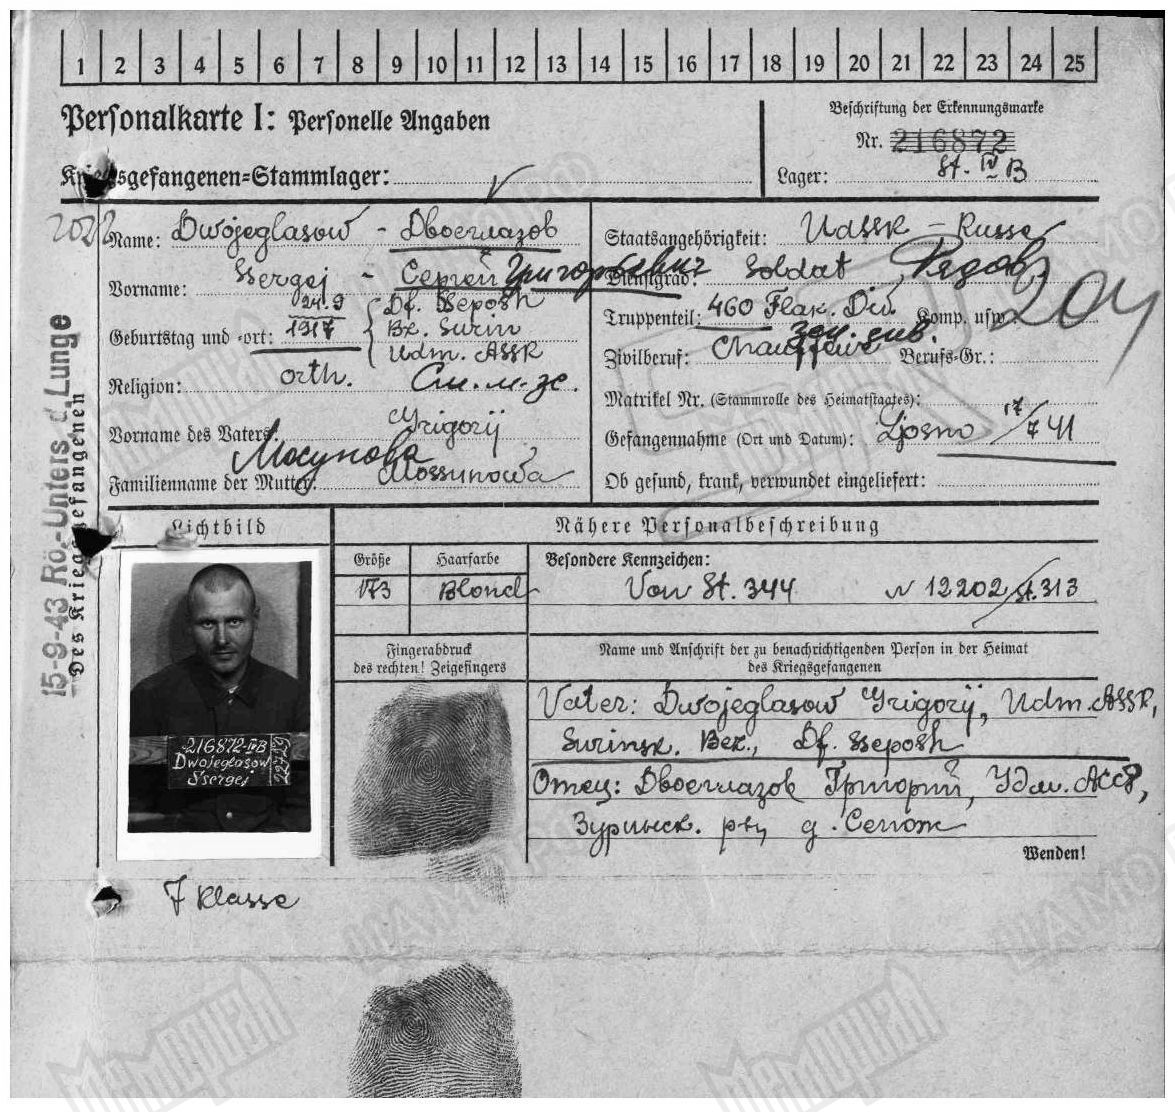 1 2 3 4 5 6 7 8 9 10 11 12 13 14 15 16 17 18 19 20 21 22 23 24 25
Personalkarte I: Personelle Angaben
Beschriftung der Erkennungsmarke
Nr. 216872
Kriegsgefangenen=Stammlager:
Lager: St. IV B
Name: Dwojeglasow - Двоеглазов
Staatsangehörigkeit: UdSSR - Russe
Vorname: Ssergej - Сергей Григорьевич
Dienstgrad: Soldat Рядов.
Geburtstag und -ort: 24.9 1917 Df. Sseposh
Bz. Surin
Udm. ASSR
Truppenteil: 460 Flak. Div. Komp. usw.
204
зен. див.
Zivilberuf: Chauffeur Berufs-Gr.:
Religion: orth. См. м-це.
Matrikel Nr. (Stammrolle des Heimatstaates):
Vorname des Vaters: Grigorij
Gefangennahme (Ort und Datum): Ljosno 17/7 41
Мосунова
Familienname der Mutter: Mossunowa
Ob gesund, krank, verwundet eingeliefert:
15-9-43 Rö.-Unters. d. Lunge
Des Kriegsgefangenen
Lichtbild
Nähere Personalbeschreibung
Größe Haarfarbe Besondere Kennzeichen:
173 Blond Von St. 344 N 12202 St. 313
Fingerabdruck
des rechten! Zeigefingers
Name und Anschrift der zu benachrichtigenden Person in der Heimat
des Kriegsgefangenen
Vater: Dwojeglasow Grigorij, Udm. ASSR,
Surinsk. Bez., Df. Sseposh
Отец: Двоеглазов Григорий, Удм. АССР,
Зуринск. р-н, д. Сепож
216872-IVB
Dwojeglasow
Ssergej
Wenden!
7 Klasse
Мемориал
ЦАМО